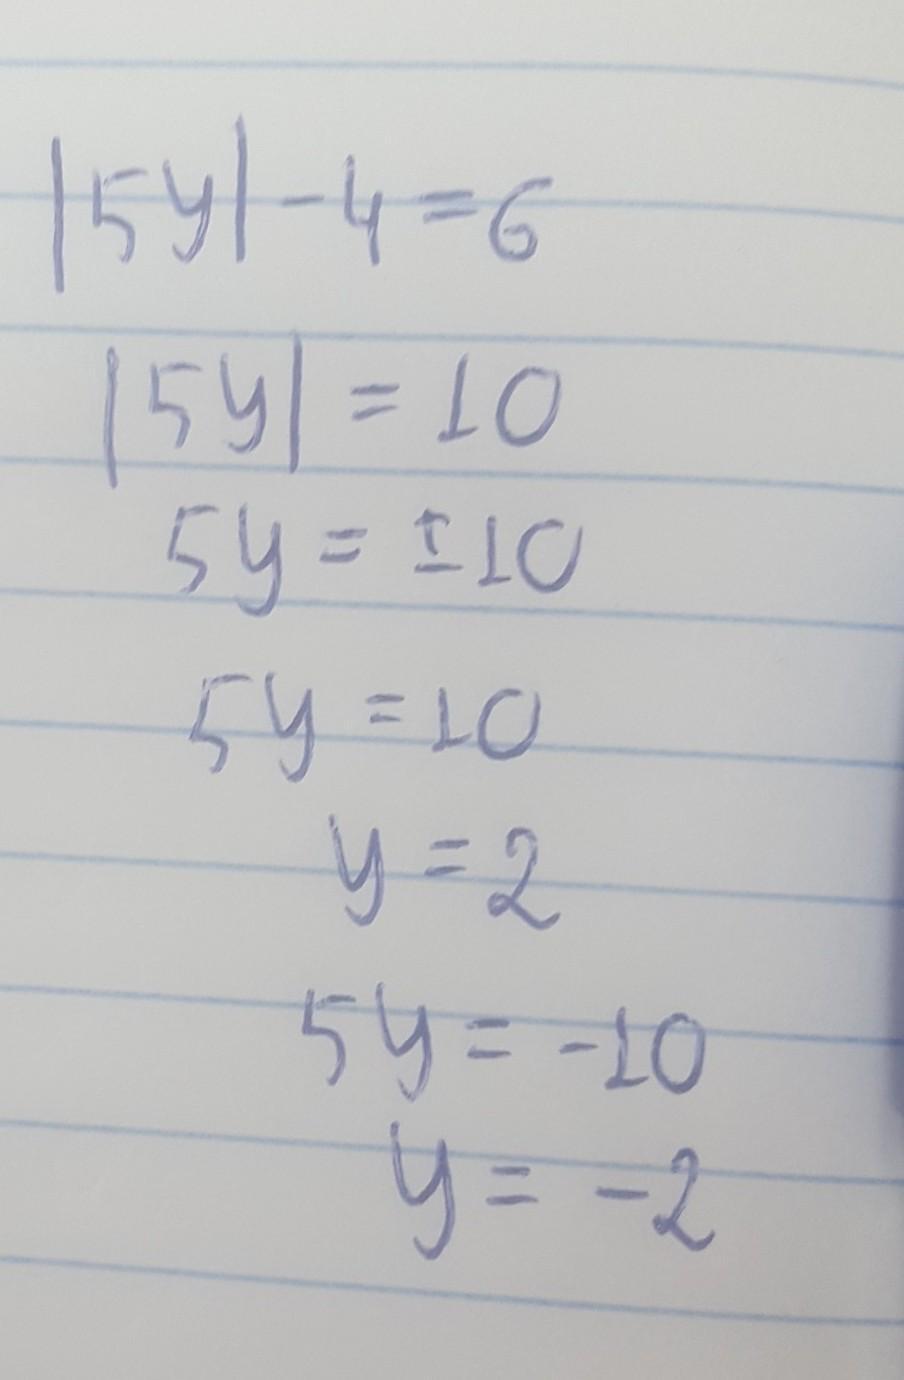 |5y| - 4 = 6
|5y| = 10
5y = ±10
5y = 10
y = 2
5y = -10
y = -2